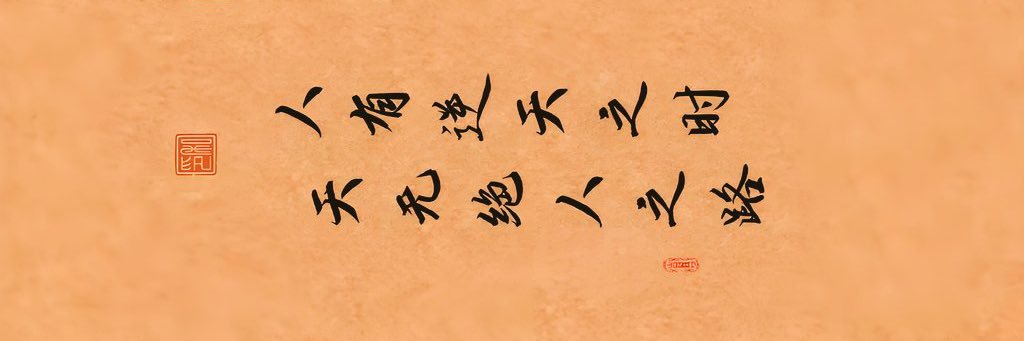 人有逆天之时
天无绝人之路